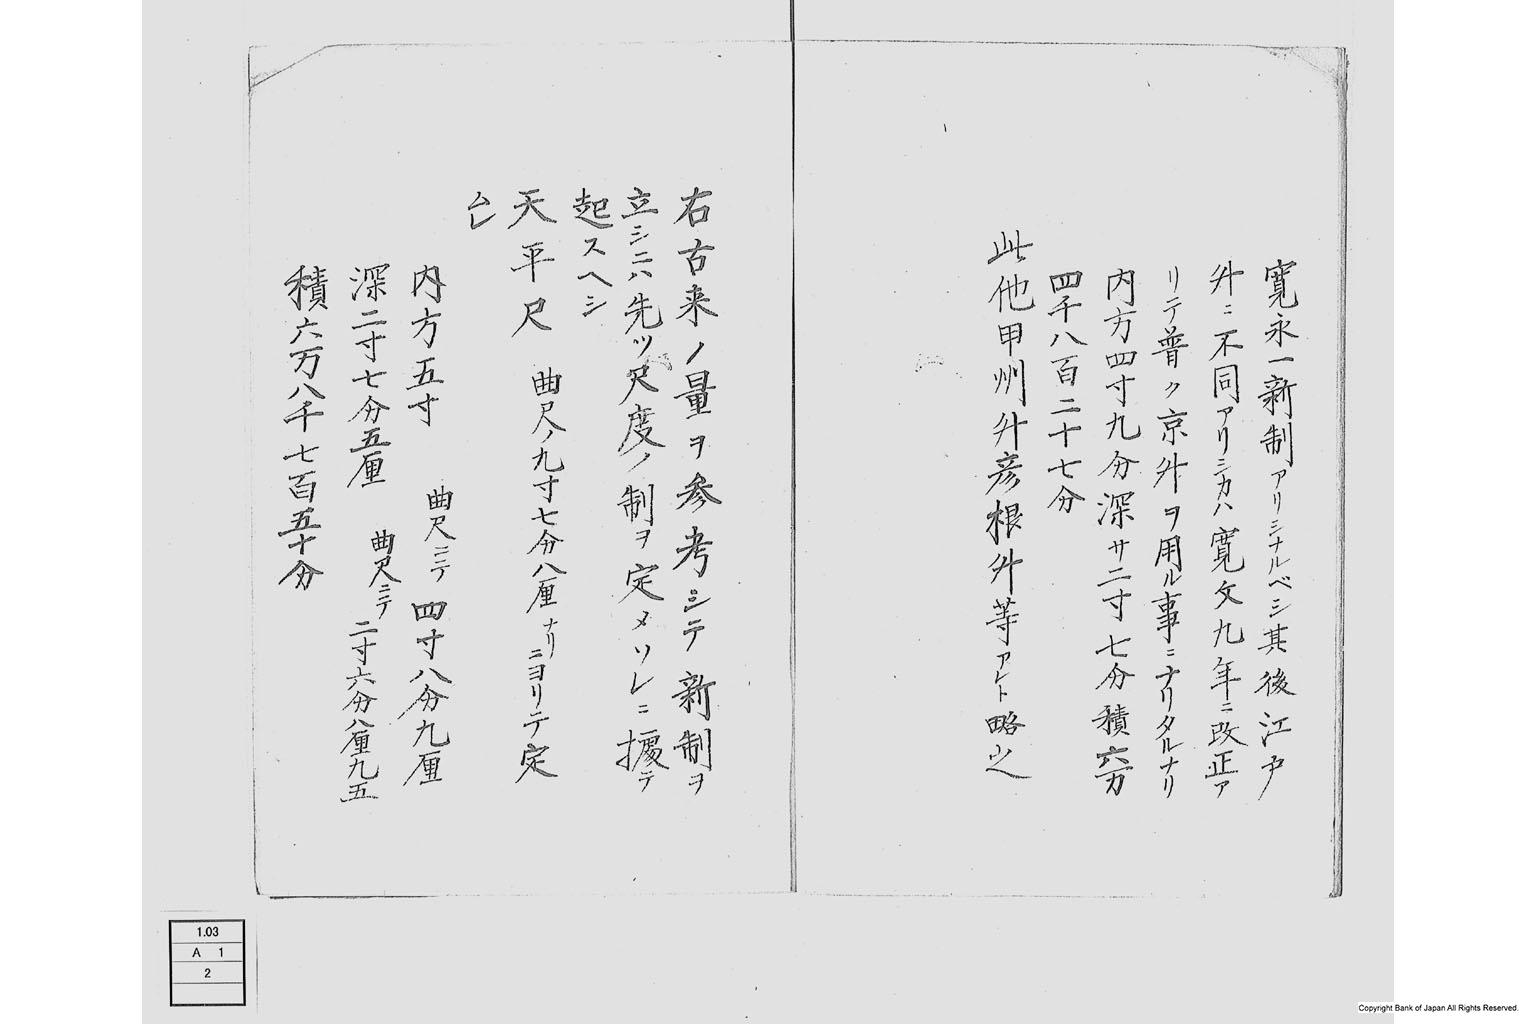 寛永ノ新制アリシナルベシ其後江戸
升ニ不同アリシカハ寛文九年ニ改正ア
リテ普ク京升ヲ用ル事ニナリタルナリ
内方四寸九分深サ二寸七分積六万
四千八百二十七分
此他甲州升彦根升等アレト略之
右古来ノ量ヲ参考シテ新制ヲ
立シニハ先ツ尺度ノ制ヲ定メソレニ據テ
起スヘシ
天平尺 曲尺ノ九寸七分八厘ナリ ニヨリテ定
ムレ
内方五寸 曲尺ニテ四寸八分九厘
深二寸七分五厘 曲尺ニテ二寸六分八厘九五
積六万八千七百五十分
1.03
A 1
2
Copyright Bank of Japan All Rights Reserved.